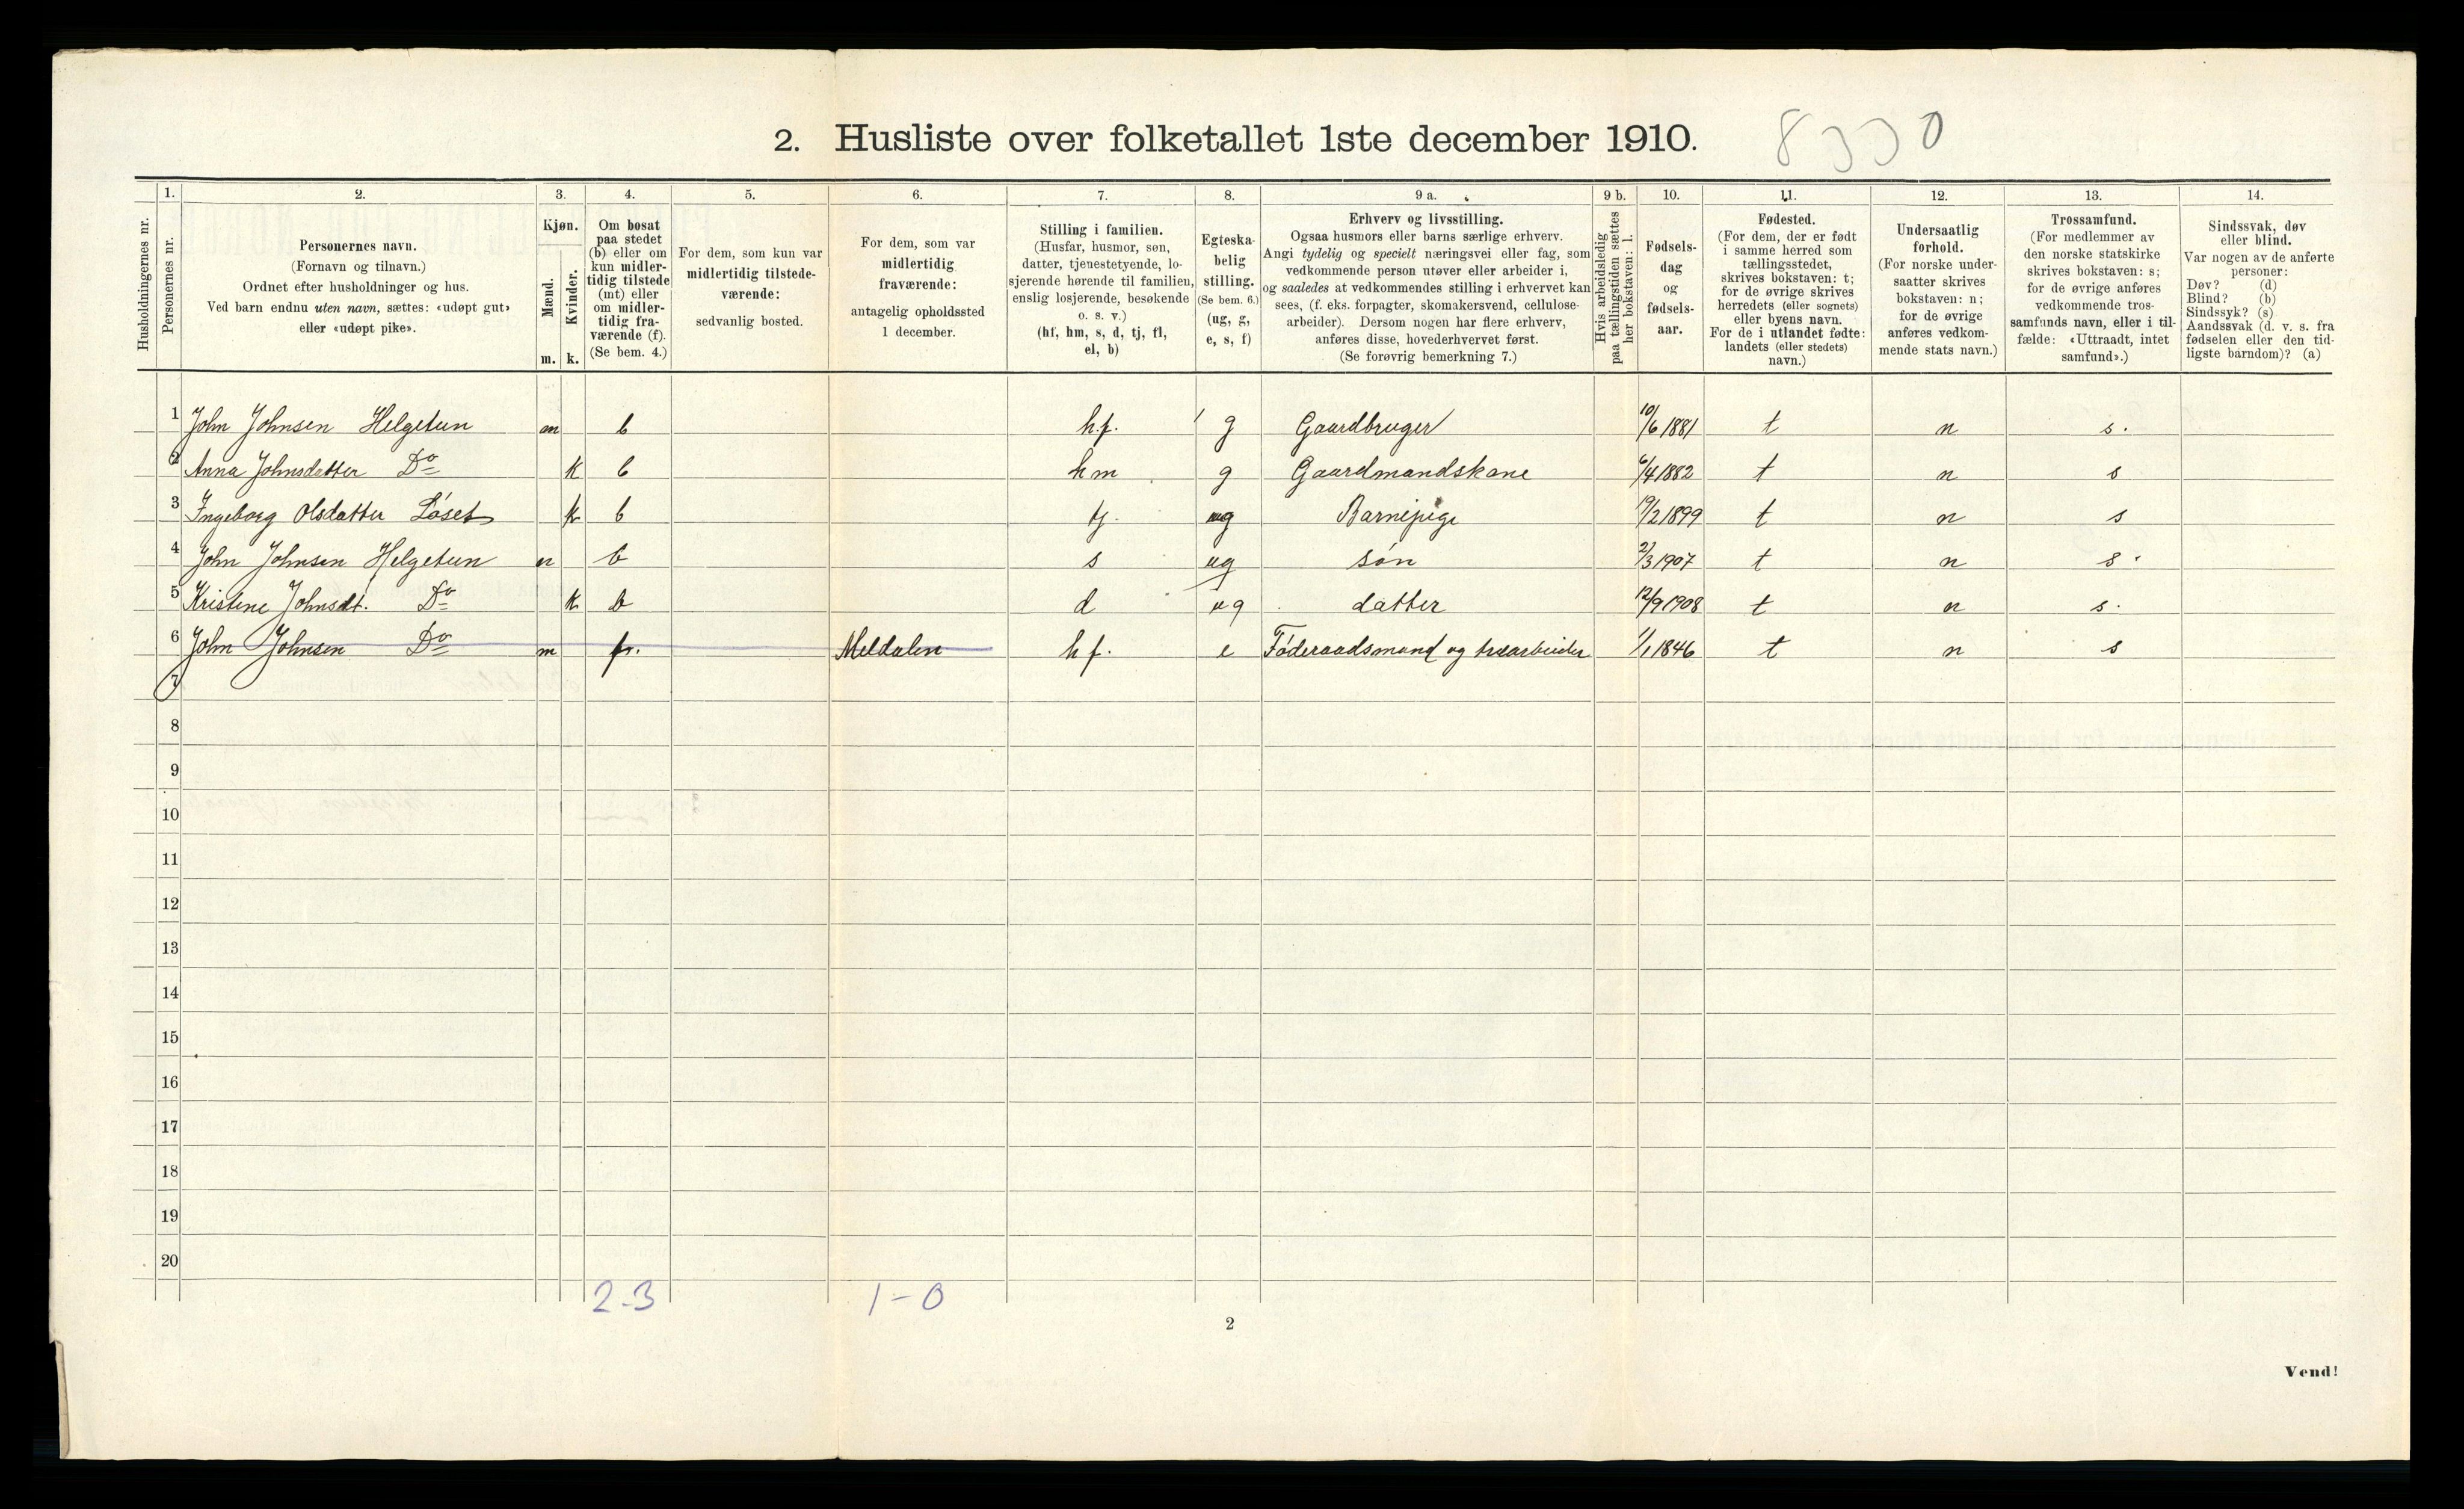 2. Husliste over folketallet 1ste december 1910. 8330
Husholdningernes nr.
1. Personernes nr.
2. Personernes navn. (Fornavn og tilnavn.) Ordnet efter husholdninger og hus. Ved barn endnu uten navn, sættes: «udøpt gut» eller «udøpt pike».
3. Kjøn. Mænd. m. Kvinder. k.
4. Om bosat paa stedet (b) eller om kun midlertidig tilstede (mt) eller om midlertidig fraværende (f). (Se bem. 4.)
5. For dem, som kun var midlertidig tilstedeværende: sedvanlig bosted.
6. For dem, som var midlertidig fraværende: antagelig opholdssted 1 december.
7. Stilling i familien. (Husfar, husmor, søn, datter, tjenestetyende, losjerende hørende til familien, enslig losjerende, besøkende o. s. v.) (hf, hm, s, d, tj, fl, el, b)
8. Egteskabelig stilling. (Se bem. 6.) (ug, g, e, s, f)
9 a. Erhverv og livsstilling. Ogsaa husmors eller barns særlige erhverv. Angi tydelig og specielt næringsvei eller fag, som vedkommende person utøver eller arbeider i, og saaledes at vedkommendes stilling i erhvervet kan sees, (f. eks. forpagter, skomakersvend, cellulosearbeider). Dersom nogen har flere erhverv, anføres disse, hovederhvervet først. (Se forøvrig bemerkning 7.)
9 b. Hvis arbeidsledig paa tællingstiden sættes her bokstaven: l.
10. Fødselsdag og fødselsaar.
11. Fødested. (For dem, der er født i samme herred som tællingsstedet, skrives bokstaven: t; for de øvrige skrives herredets (eller sognets) eller byens navn. For de i utlandet fødte: landets (eller stedets) navn.)
12. Undersaatlig forhold. (For norske undersaatter skrives bokstaven: n; for de øvrige anføres vedkommende stats navn.)
13. Trossamfund. (For medlemmer av den norske statskirke skrives bokstaven: s; for de øvrige anføres vedkommende trossamfunds navn, eller i tilfælde: «Uttraadt, intet samfund».)
14. Sindssvak, døv eller blind. Var nogen av de anførte personer: Døv? (d) Blind? (b) Sindssyk? (s) Aandssvak (d. v. s. fra fødselen eller den tidligste barndom)? (a)
1 John Johnsen Helgetun m b h.f. g Gaardbruger 10/6 1881 t n s.
2 Anna Johnsdatter Do k b hm g Gaardmandskone 6/4 1882 t n s
3 Ingeborg Olsdatter Løset k b tj. ug Barnepige 19/2 1899 t n s
4 John Johnsen Helgetun m b s ug søn 2/3 1907 t n s.
5 Kristine Johnsdt. Do k b d ug datter 12/9 1908 t n s.
6 John Johnsen Do m fr. Meldalen hf. e Føderaadsmand og træarbeider 1/1 1846 t n s
7
8
9
10
11
12
13
14
15
16
17
18
19
20
2-3 1-0
2
Vend!